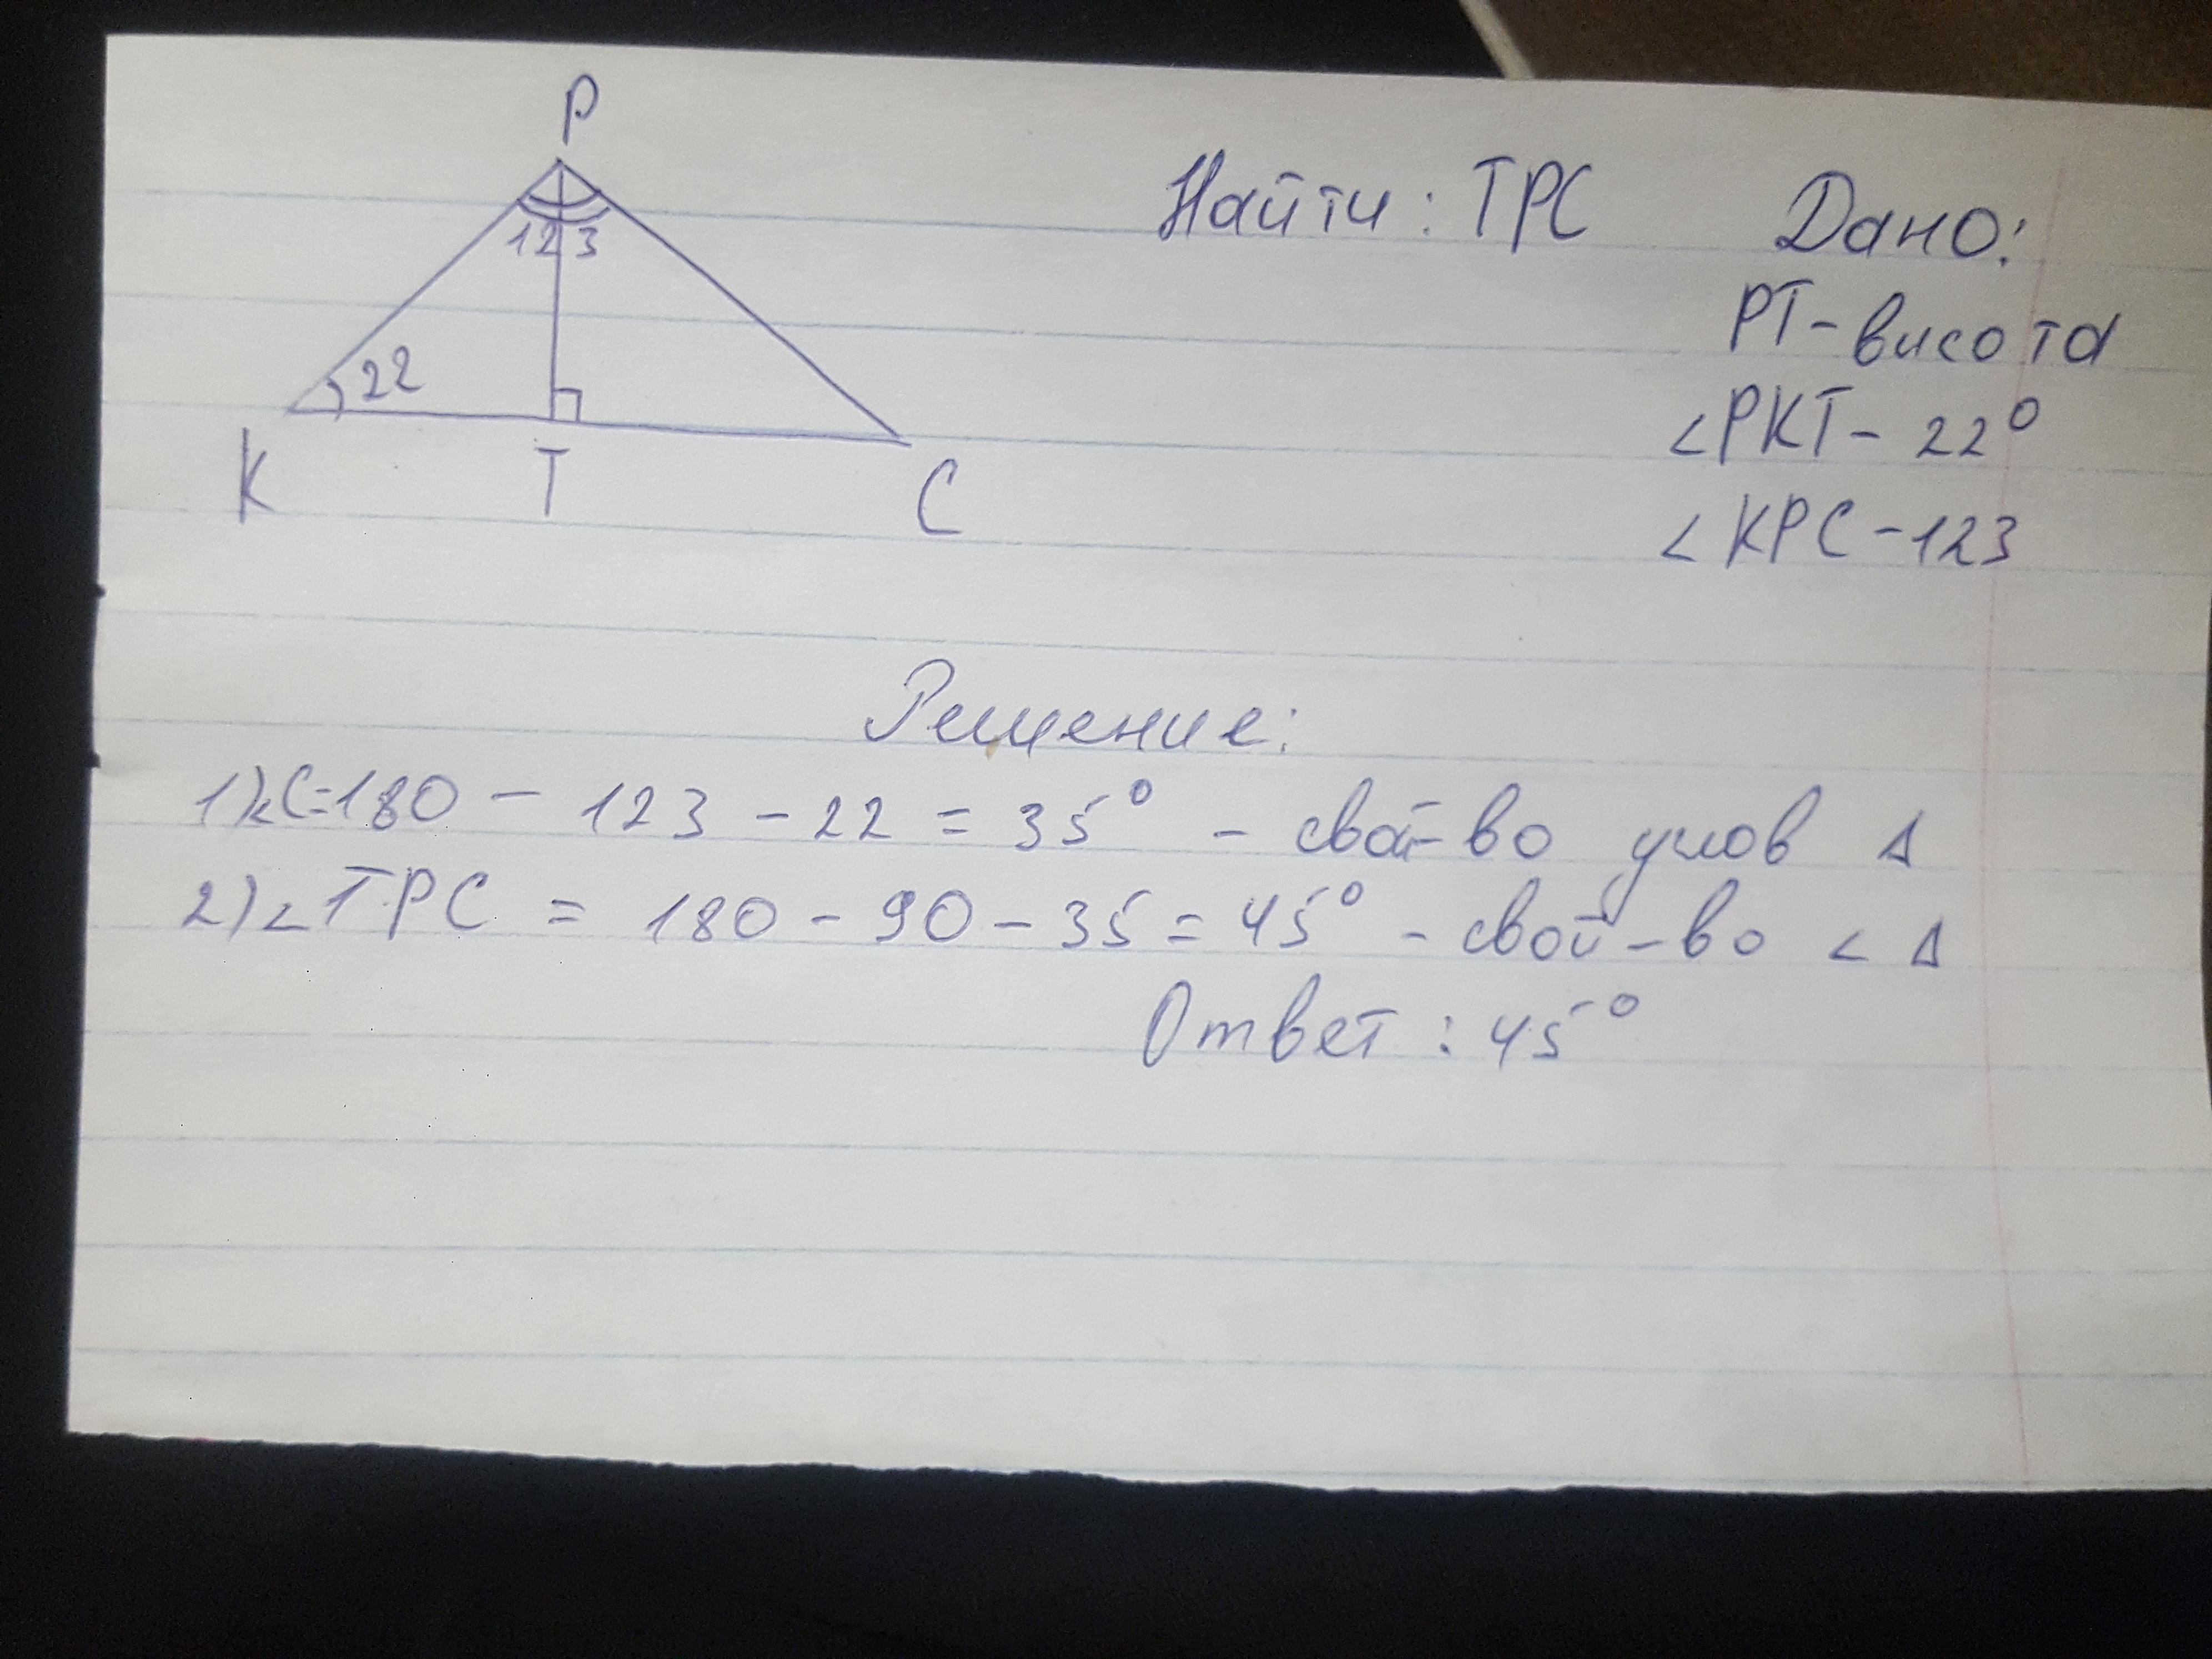 P
123
22
K
T
C
Найти: TPC
Дано:
PT - висота
<PKT - 22°
<KPC - 123
Решение:
1)<C=180 - 123 - 22 = 35° - свой-во углов Δ
2)<TPC = 180 - 90 - 35 = 45° - свой-во < Δ
Ответ: 45°